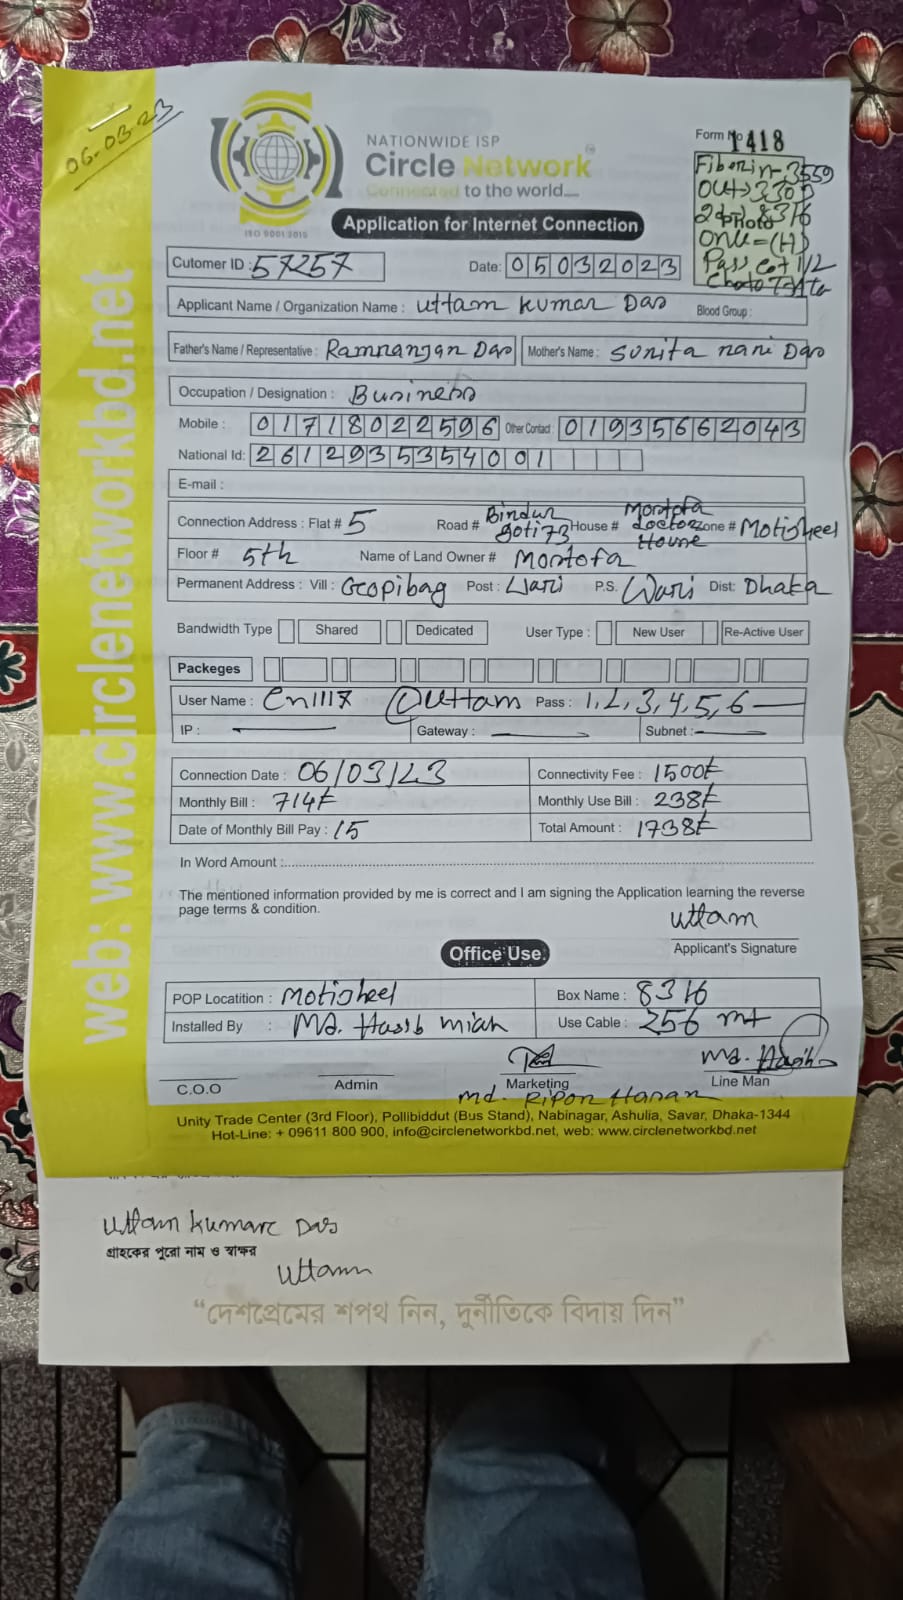 06-03-23
NATIONWIDE ISP
Circle Network
Connected to the world....
ISO 9001:2015
Application for Internet Connection
Form No 1418
Fiber in-3559
Out→3303
Photo 8316
onu=(H)
Cutomer ID : 57257
Date: 05032023
Applicant Name / Organization Name : Uttam Kumar Das Blood Group :
Father's Name / Representative : Ramranjan Das Mother's Name : Sunita Rani Das
Occupation / Designation : Business
Mobile : 01718022596 Other Contact : 01935662043
National Id: 2612935354001
E-mail :
Connection Address : Flat # 5 Road # House # Mostofa doctor House Zone # Motijheel
Floor # 5th Name of Land Owner # Mostofa
Permanent Address : Vill : Gopibag Post : Wari P.S. Wari Dist: Dhaka
Bandwidth Type Shared Dedicated User Type : New User Re-Active User
Packeges
User Name : Cn1117 @Uttam Pass : 1,2,3,4,5,6
IP : Gateway : Subnet :
Connection Date : 06/03/23 Connectivity Fee : 1500৳
Monthly Bill : 714৳ Monthly Use Bill : 238৳
Date of Monthly Bill Pay : 15 Total Amount : 1738৳
In Word Amount :
The mentioned information provided by me is correct and I am signing the Application learning the reverse
page terms & condition.
Uttam
Applicant's Signature
Office Use:
POP Locatition : Motijheel Box Name : 8316
Installed By : Md. Hasib miah Use Cable : 256 mt
Md. Hasib
C.O.O Admin Marketing Line Man
md. Ripon Hasan
Unity Trade Center (3rd Floor), Pollibiddut (Bus Stand), Nabinagar, Ashulia, Savar, Dhaka-1344
Hot-Line: + 09611 800 900, info@circlenetworkbd.net, web: www.circlenetworkbd.net
web: www.circlenetworkbd.net
Uttam Kumar Das
গ্রাহকের পুরো নাম ও স্বাক্ষর
Uttam
“দেশপ্রেমের শপথ নিন, দুর্নীতিকে বিদায় দিন”